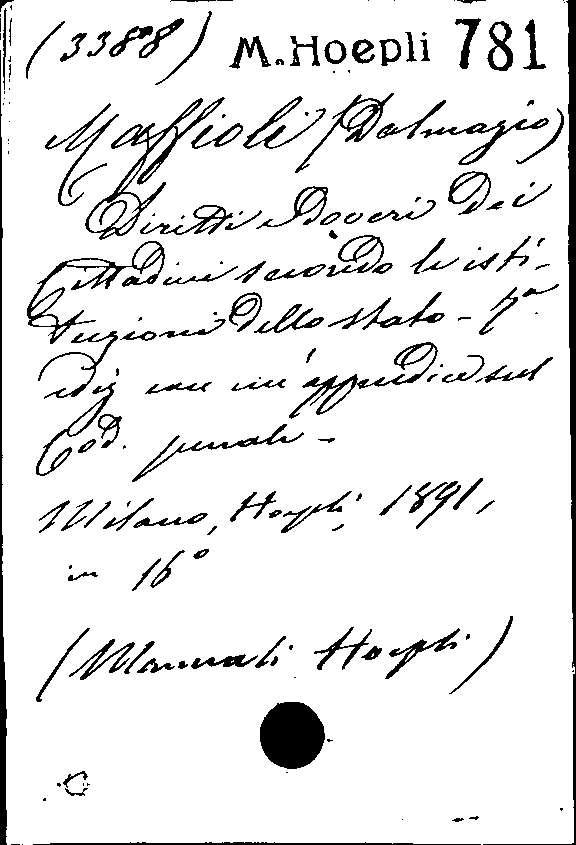 (3388) M. Hoepli 781
Maffioli (Dalmazio)
Diritti e doveri dei
Cittadini secondo le isti-
tuzioni dello stato - 7a
ediz con un'appendice sul
Cod. penale -
Milano, Hoepli, 1891,
in 16°
(Manuali Hoepli)